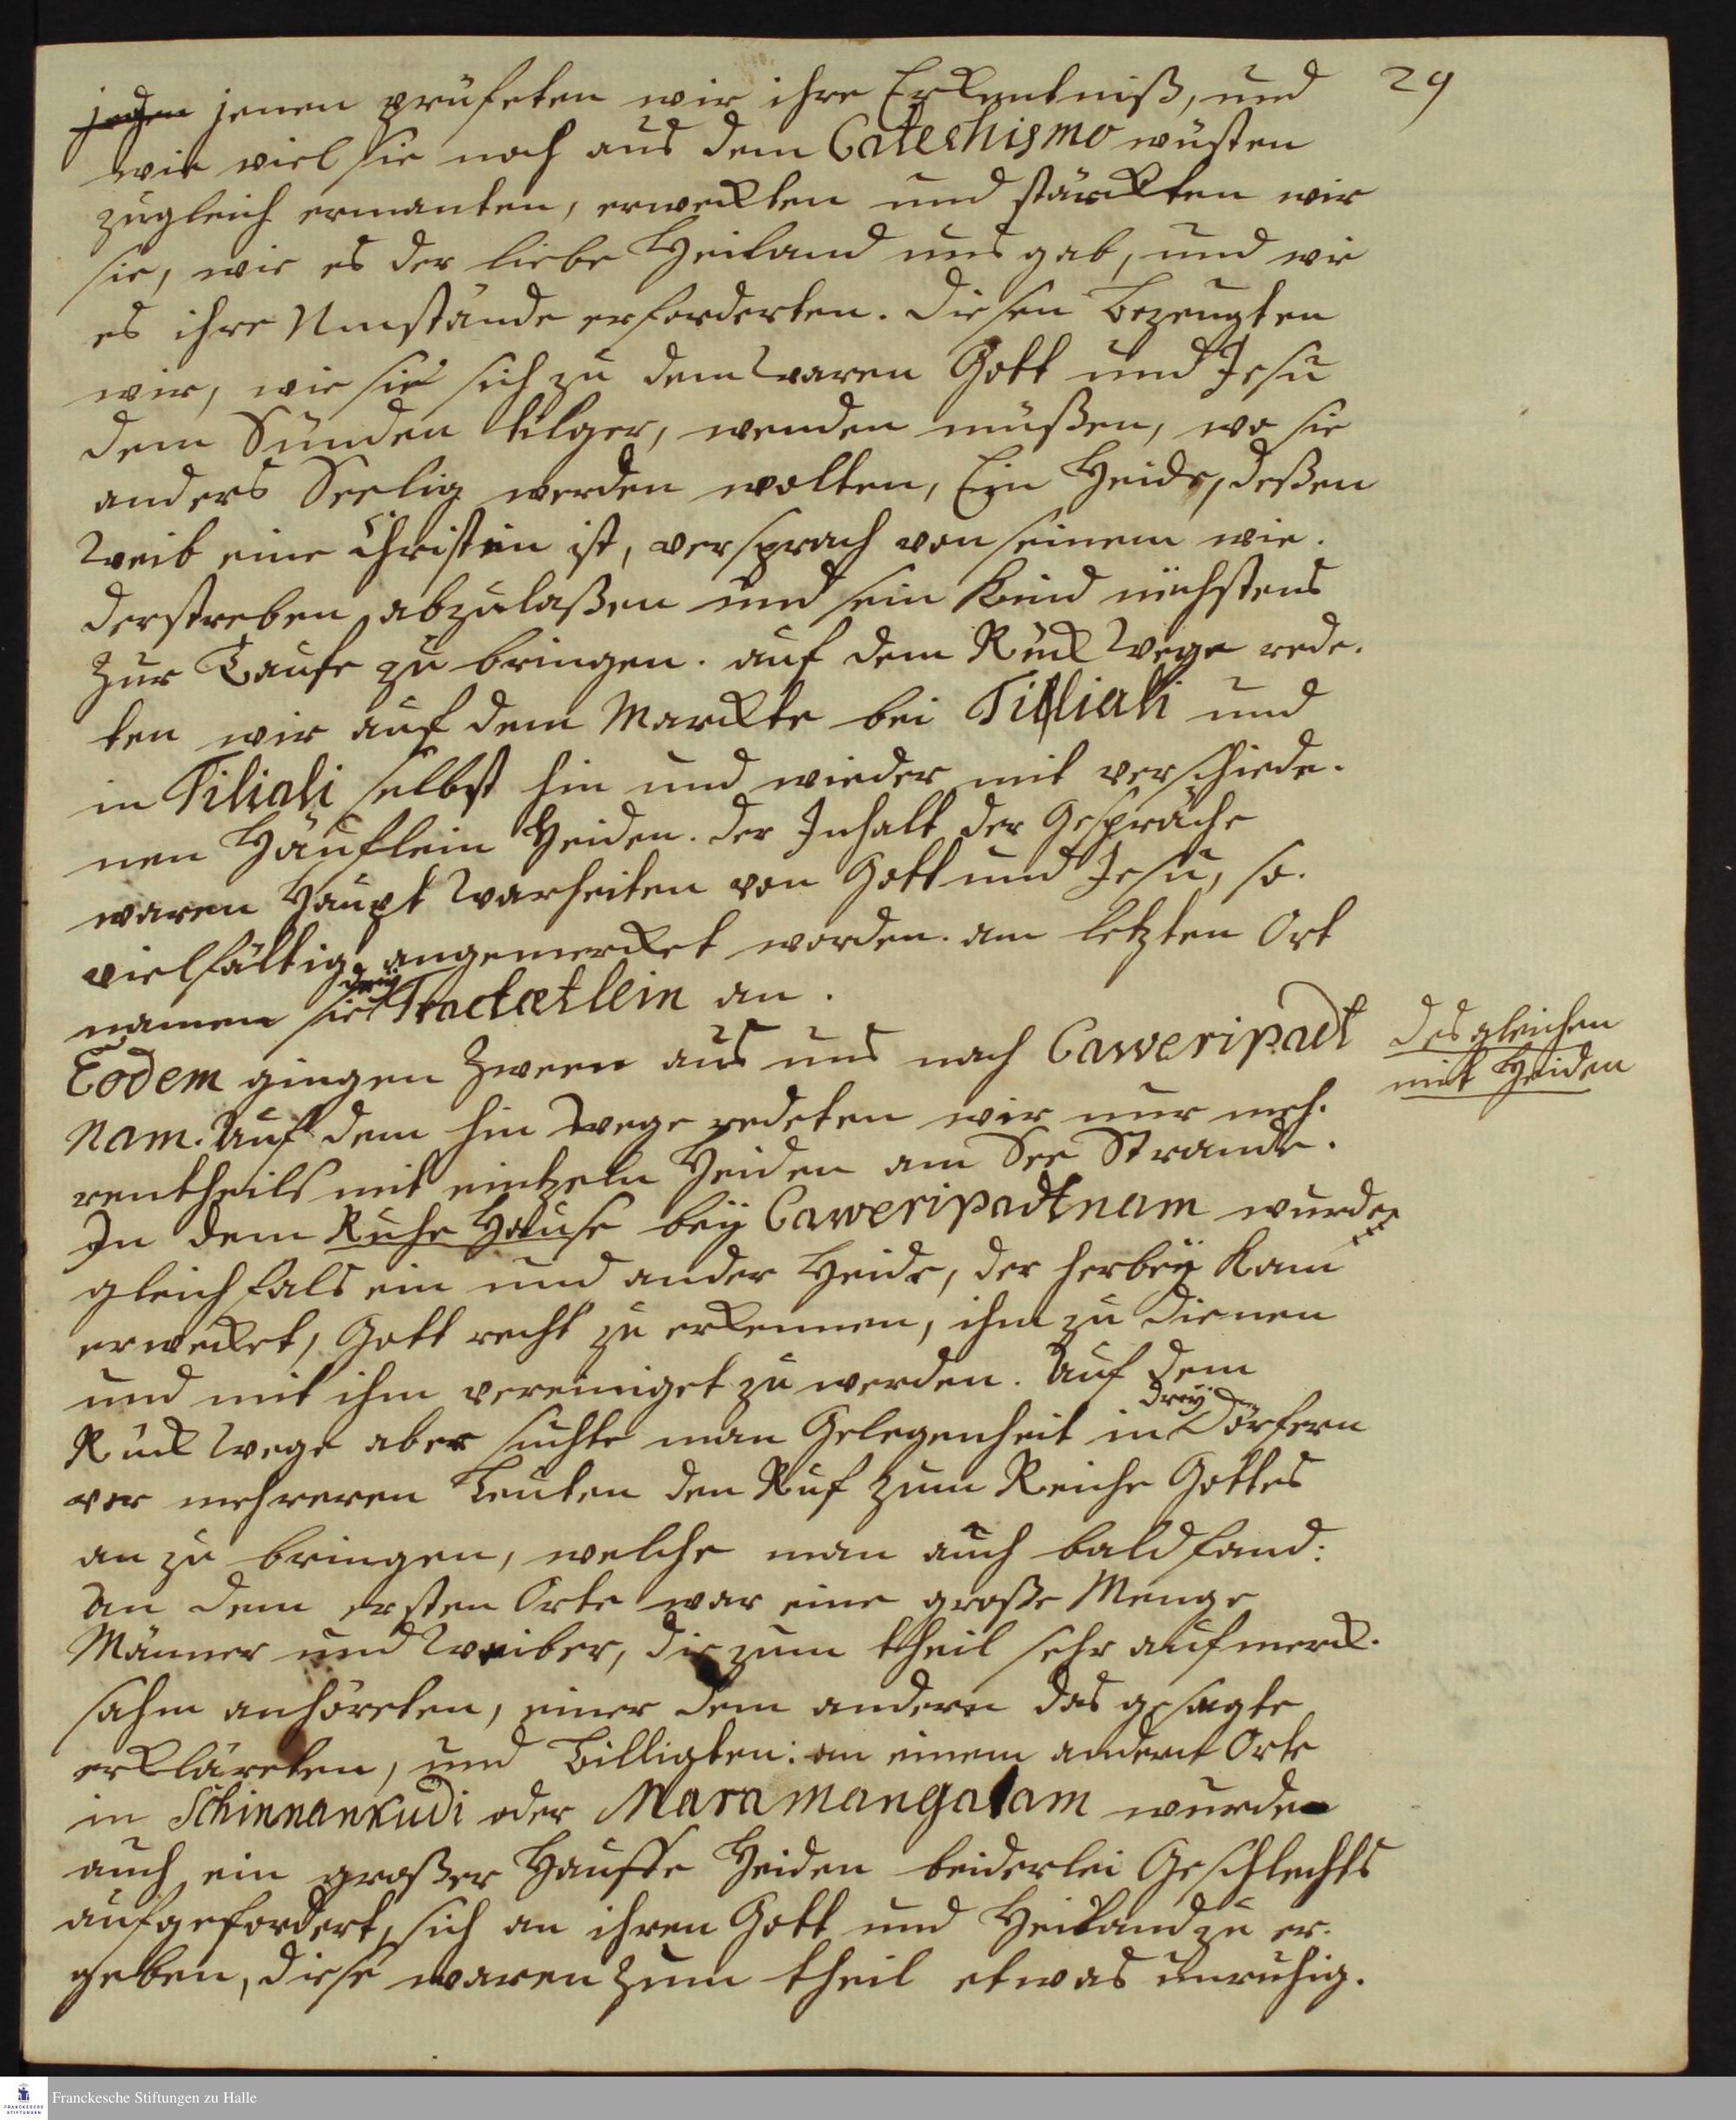 29
jenen prüfeten wir ihre Erkentniß, und
wie viel sie noch aus dem Catechismo wüsten
zugleich ermanten, erweckten und stärckten wir
sie, wie es der liebe Heiland uns gab, und wie
es ihre Umstände erforderten. Diesen bezeugten
wir, wie sie sich zu dem waren Gott und Jesu
dem Sünden tilger, wenden müßen, wo sie
anders Seelig werden wolten, Ein Heide, deßen
Weib eine Christin ist, versprach von seinem wie-
derstreben abzulaßen und sein Kind nächstens
zur Taufe zu bringen. auf dem Rück Wege rede-
ten wir auf dem Marckte bei Tilliali und
in Tiliali selbst hin und wieder mit verschiede-
nen Häuflein Heiden. der Inhalt der Gespräche
waren Haupt Warheiten von Gott und Jesu, so.
vielfältig angemercket worden. am letzten Ort
namen sie drey Tractætlein an.
Eodem gingen Zween aus uns nach Caweripadt
nam. Auf dem hin Wege redeten wir nur meh-
rentheils mit eintzeln Heiden am See Strande.
In dem Ruhe Hause bey Caweripadtnam wurde
gleichfals ein und ander Heide, der herbey kam
erwecket, Gott recht zu erkennen, ihm zu dienen
und mit ihm vereiniget zu werden. Auf dem
Rück Wege aber suchte man Gelegenheit in drey Dörfern
vor mehreren Leuten den Ruf zum Reiche Gottes
an zu bringen, welche man auch bald fand:
An dem ersten Orte war eine große Menge
Männer und Weiber, die zum theil sehr aufmerck-
sahm anhöreten, einer dem andern das gesagte
erkläreten, und billigten: an einem andern Orte
in Schinnankudi oder Maramangalam wurde
auch ein großer Hauffe Heiden beiderlei Geschlechts
aufgefordert, sich an ihren Gott und Heiland zu er-
geben, diese waren zum theil etwas unruhig.
Desgleichen
mit Heiden
Franckesche Stiftungen zu Halle
FRANCKESCHE
STIFTUNGEN